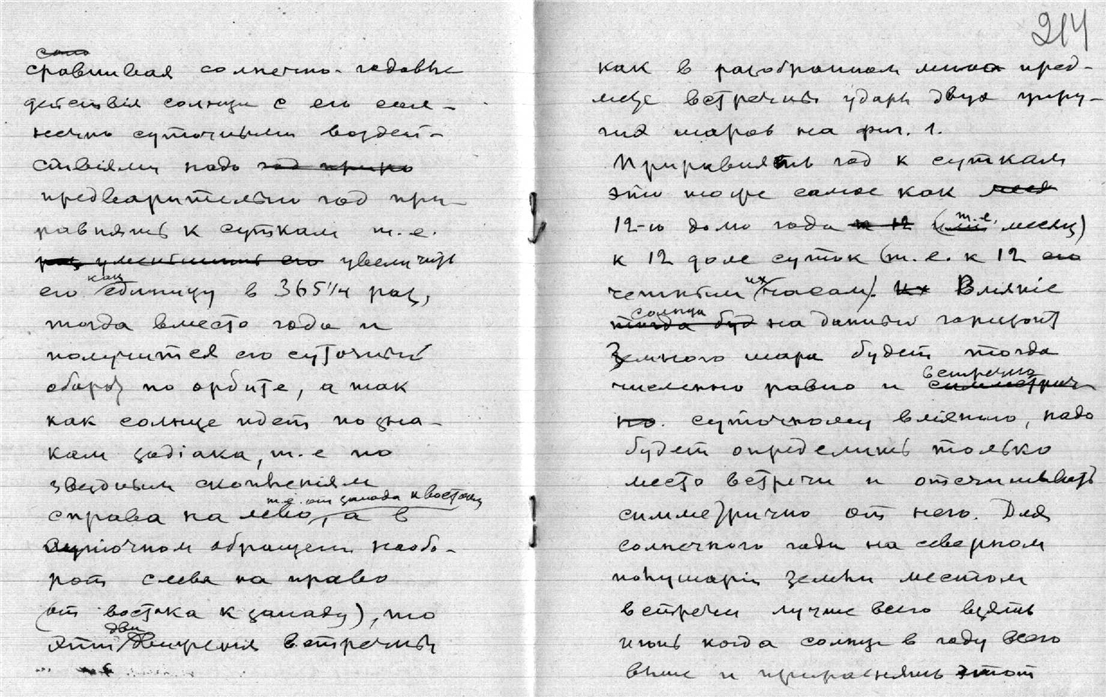 сравнивая солнечно-годовые
действія солнца с его сол-
нечно суточными воздей-
ствіями надо
предварительно год при-
равнять к суткам т.е.
увеличить
его как единицу в 365 1/4 раз,
тогда вместо года и
получится его суточный
оборот по орбите, а так
как солнце идет по зна-
кам зодіака, т.е по
звездным скопленіям
т.е. от запада к востоку
справа на лево, а в
суточном обращении наобо-
рот слева на право
(от востока к западу), то
эти два движенія встречны
214
как в разобранном пред-
встречны удары двух упру-
гих шаров на фиг. 1.
Приравнять год к суткам
это тоже самое как
12-ю долю года (т.е. месяц)
к 12 доле суток (т.е. к 12
четным их часам). Вліяніе
солнца на данный горизонт
Земного шара будет тогда
численно равно и встречно
суточному вліянію, надо
будет определить только
место встречи и отсчитывать
симметрично от него. Для
солнечного года на северном
полушаріи Земли местом
встречи лучше всего взять
іюнь когда солнце в году всего
выше и приравнять этот